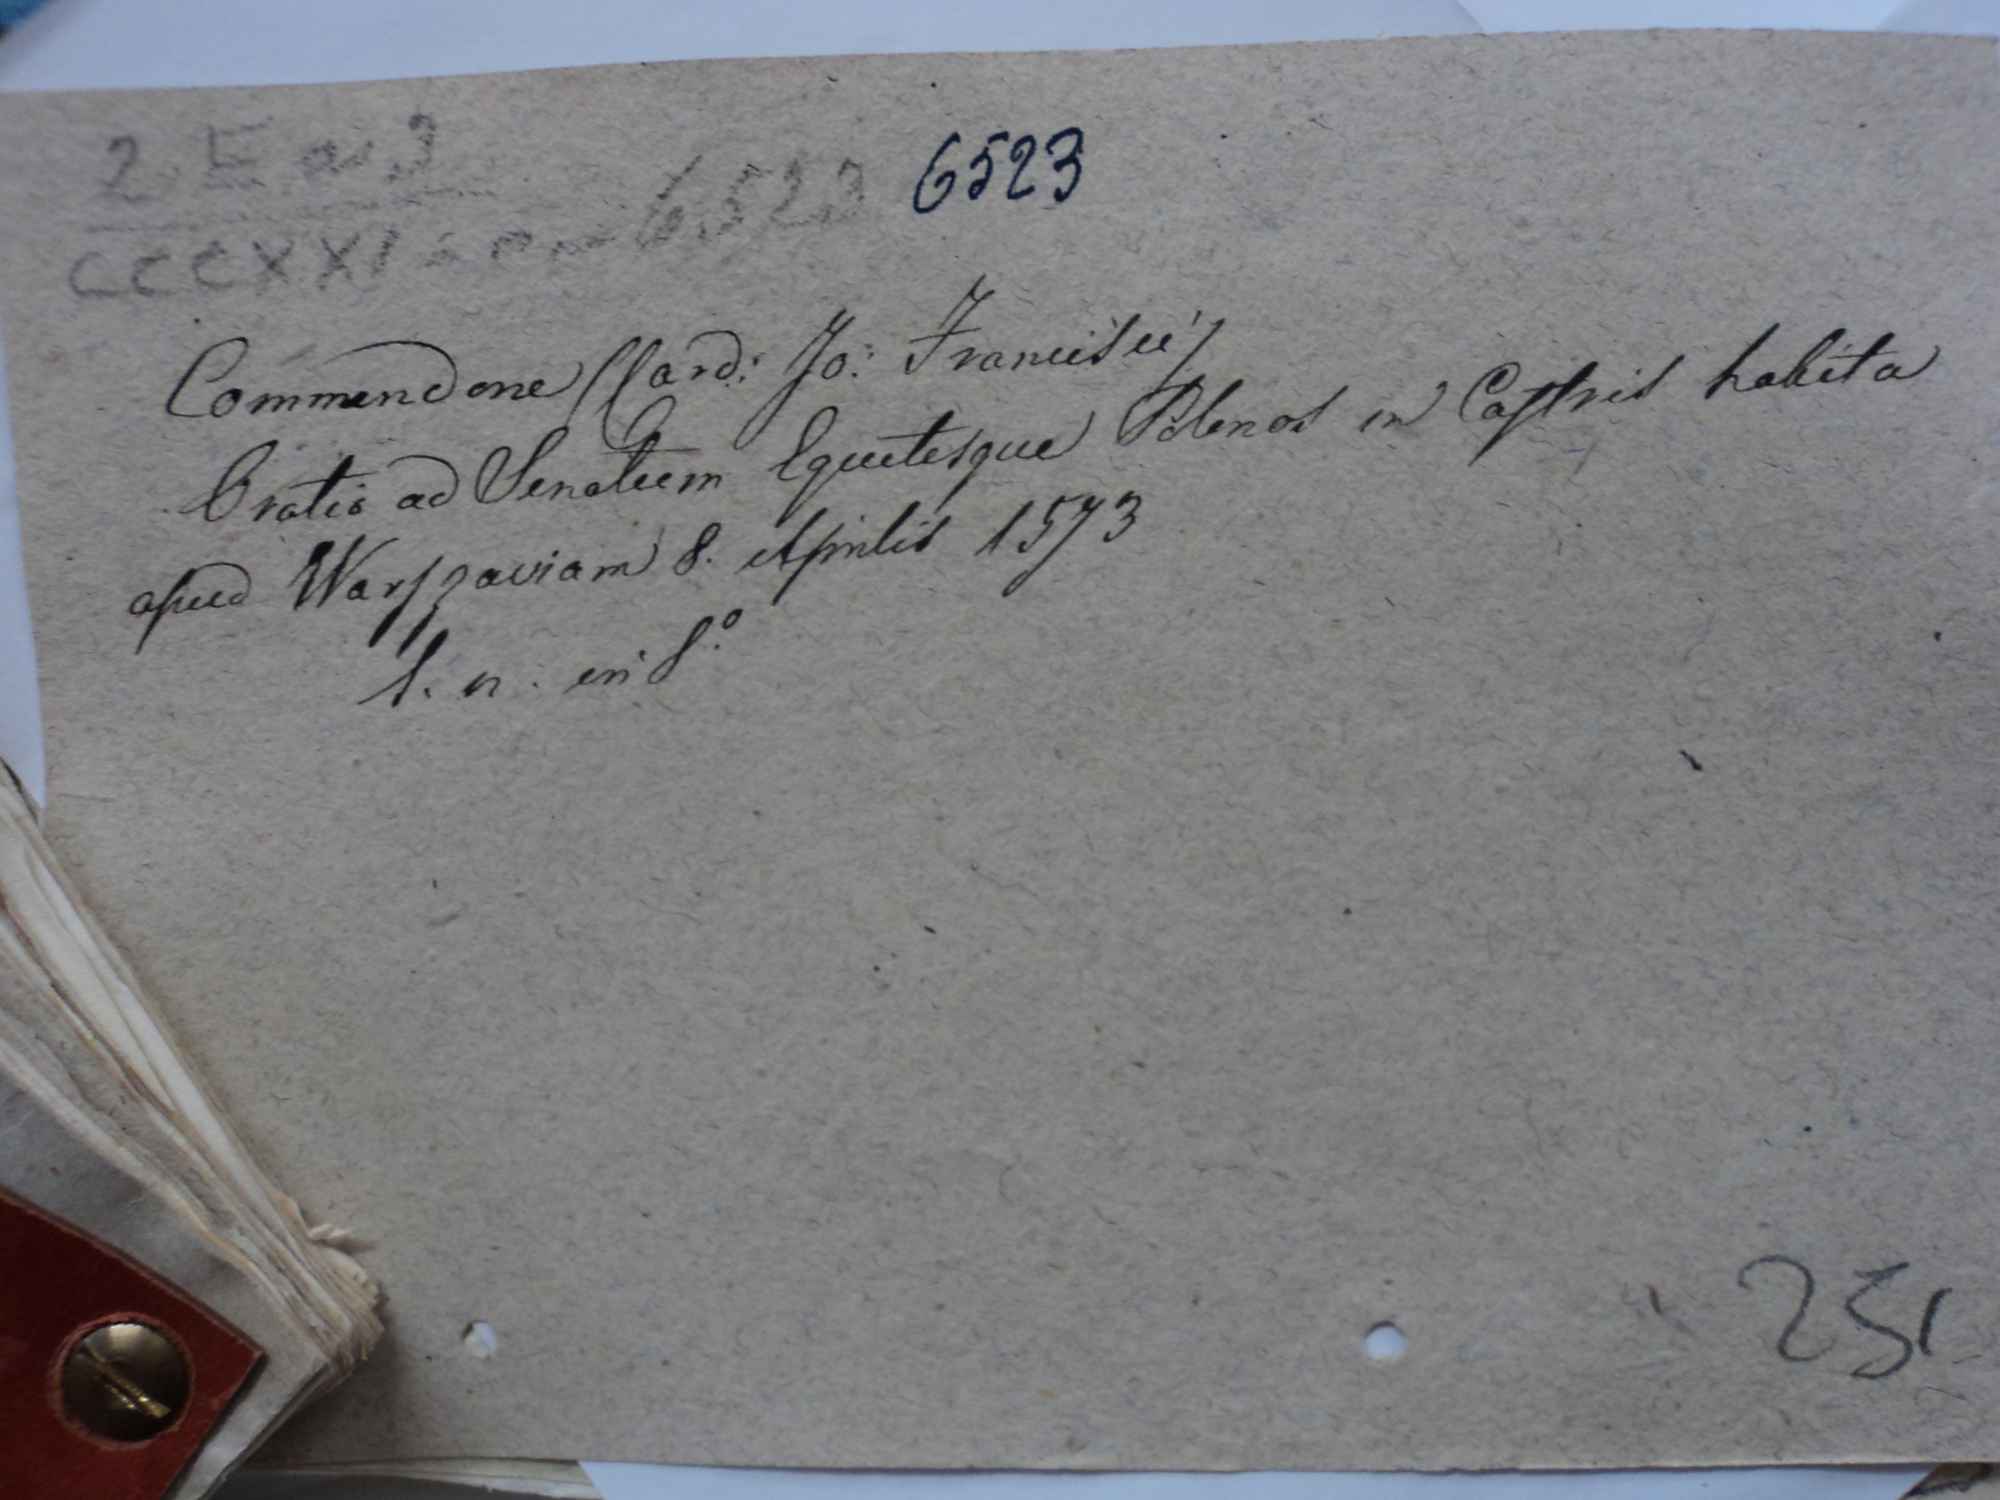 2 E
6523
CCCXXI 6523
Commendone (Card: Jo: Francisci)
Oratio ad Senatum Equitesque Polonos in Castris habita
apud Warszaviam 8. Aprilis 1573
s. n. in 8.º
251